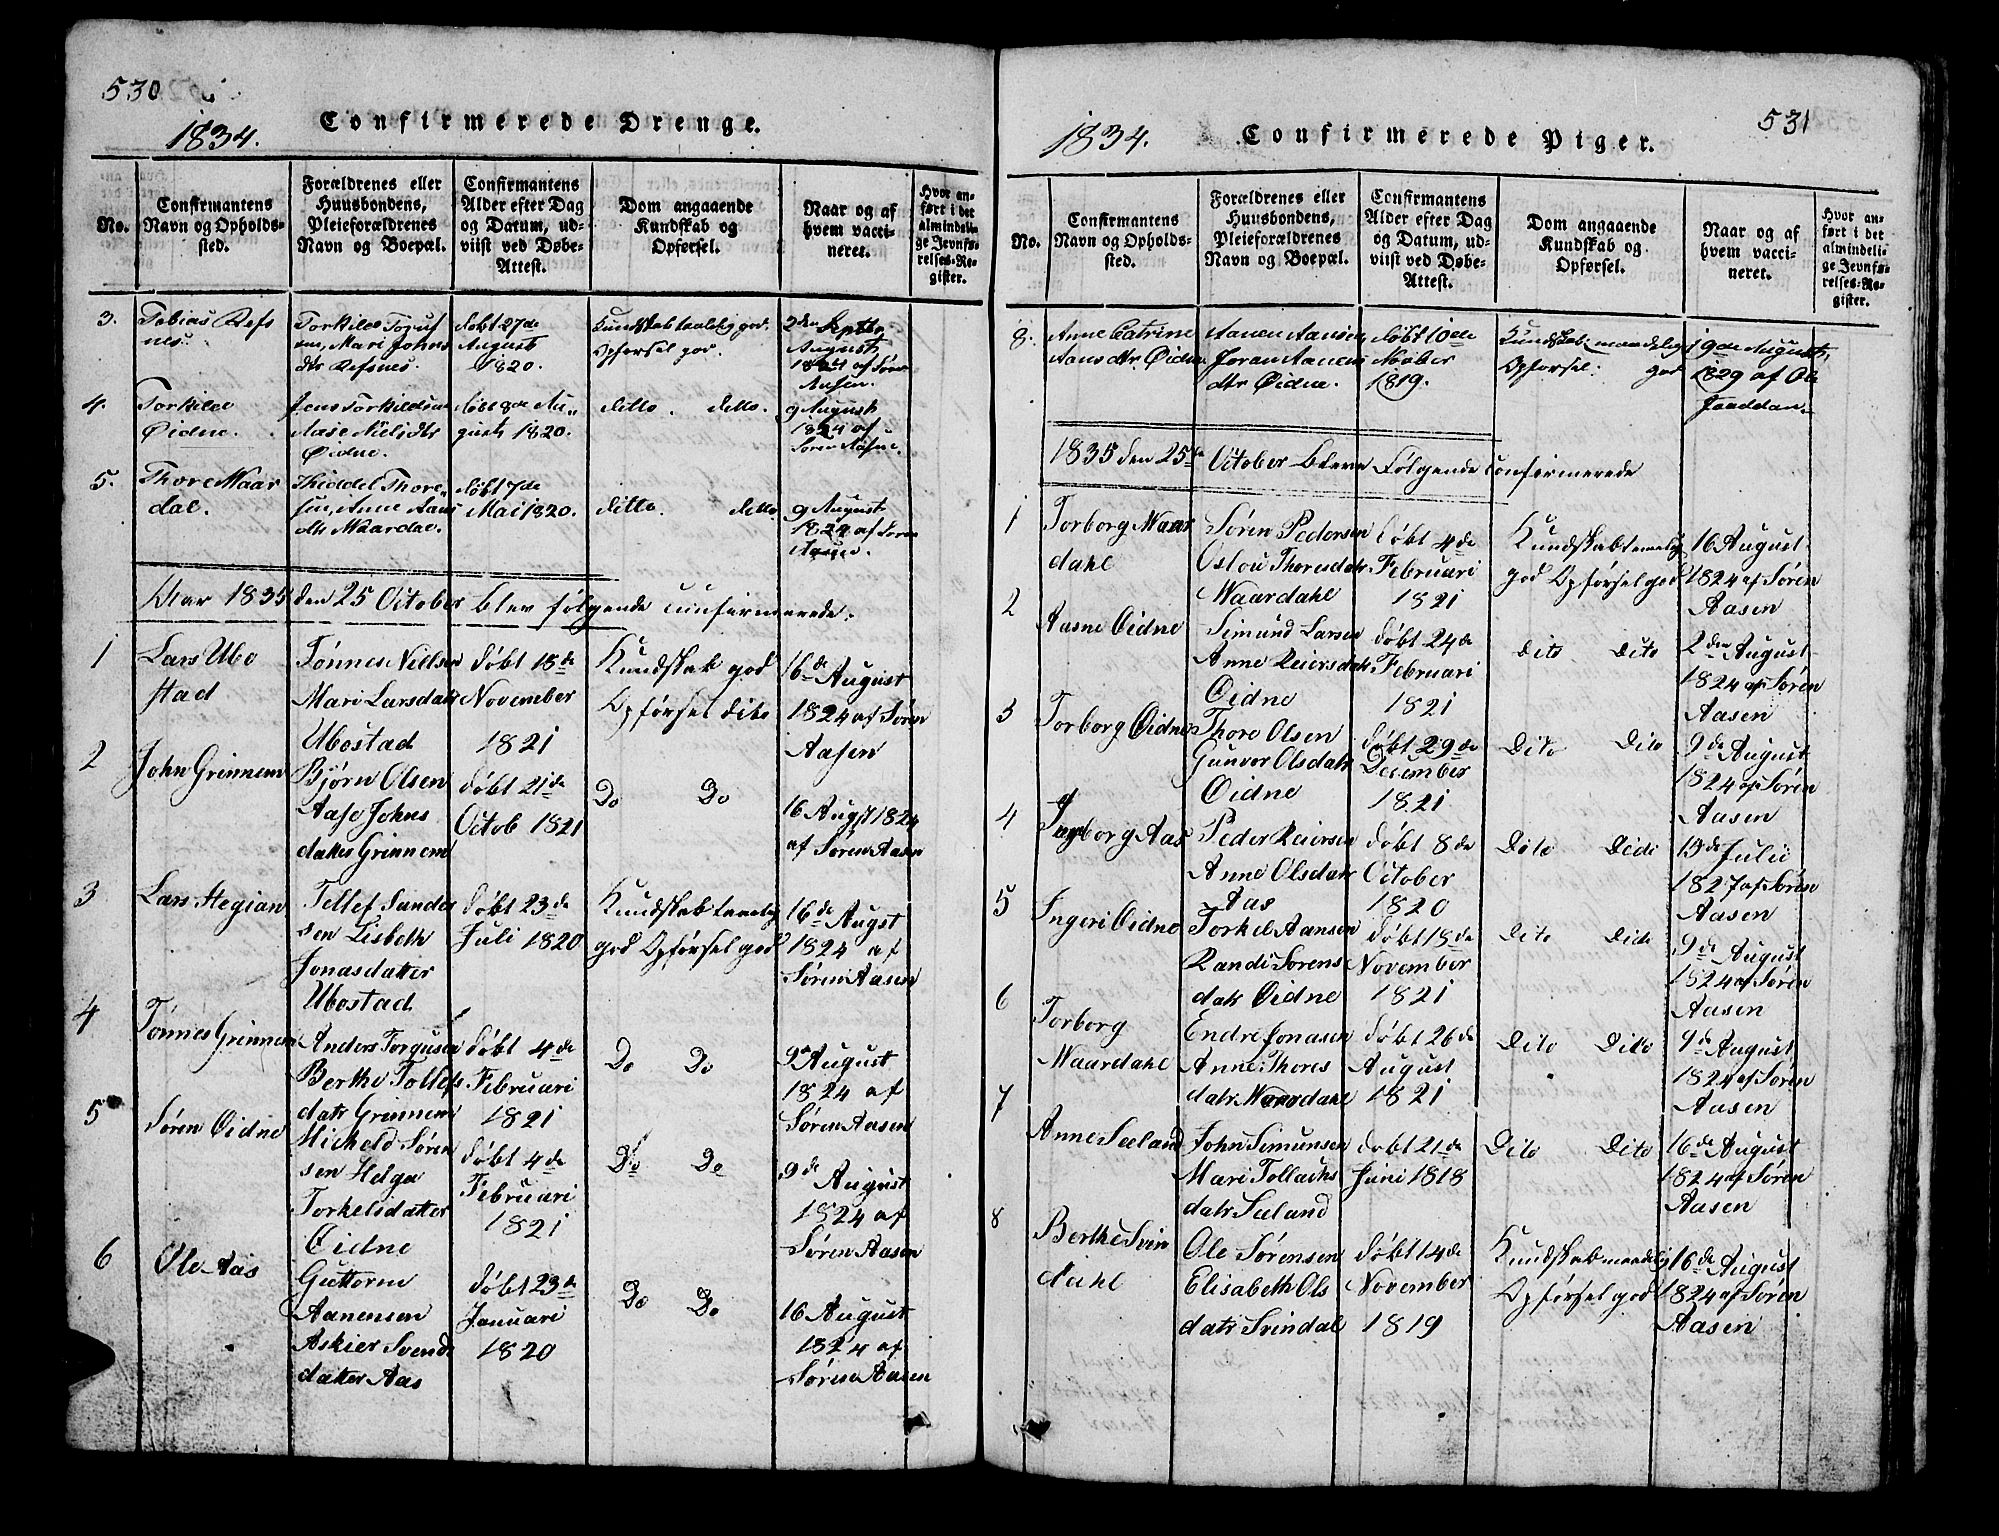 530
1834.
Confirmerede Drenge.
No.
Confirmantens
Navn og Opholds-
sted.
Forældrenes eller
Huusbondens,
Pleieforældrenes
Navn og Boepæl.
Confirmantens
Alder efter Dag
og Datum, ud-
viist ved Døbe-
Attest.
Dom angaaende
Kundskab og
Opførsel.
Naar og af
hvem vacci-
neret.
Hvor an-
ført i det
almindeli-
ge Jevnfø-
relses-Re-
gister.
3.
Tobias Refs
nes.
Torkild Torjus
sen, Mari Johns
dtr Refsnes.
døbt 27de
August
1820.
Kundskab taalelig god.
Opførsel god.
2den Septbr
August
1824 af Søren
Aasen.
4.
Torkild
Øidne.
Jens Torkildsen
Aase Niels dtr
Øidne.
døbt 8de Au-
gust 1820.
ditto. ditto.
9 August
1824 af
Søren Aasen.
5.
Thore Waar
dal.
Thiddel Thore-
sen, Anne Aans
dtr Waardal.
døbt 7de
Mai 1820.
ditto. ditto.
9 August
1824 af Søren
Aasen.
Aar 1835 den 25 October blev følgende confirmerede:
1
Lars Ubo
stad
Tønnes Nielsen
Mari Larsdatr
Ubostad
døbt 18de
November
1821
Kundskab god
Opførsel dito
16de August
1824 af Søren
Aasen
2
John Grinnem
Bjørn Olsen
Aase Johns
datter Grinnem
døbt 21de
Octob 1821
Do Do
16 Augst 1824
af Søren Aasen
3
Lars Hegian
Tellef Sunde
sen Lisbeth
Jonasdatter
Ubostad
døbt 23de
Juli 1820
Kundskab temelig
god Opførsel god
16de Augst
1824 af
Søren Aasen
4
Tønnes Grinnem
Anders Torgusen
Berthe Tollefs
datr Grinnem
døbt 4de
Februari
1821
Do Do
9de August
1824 af
Søren Aasen
5
Søren Øidne
Michold Søren
sen Helga
Torkelsdatter
Øidne
døbt 4de
Februari
1821
Do Do
9de August
1824 af
Søren Aasen
6
Ole Aas
Guttorm
Aanensen
Askier Svends
datter Aas
døbt 23de
Januari
1820
Do Do
16 August
1824 af
Søren Aasen
531
1834.
Confirmerede Piger.
No.
Confirmantens
Navn og Opholds-
sted.
Forældrenes eller
Huusbondens,
Pleieforældrenes
Navn og Boepæl.
Confirmantens
Alder efter Dag
og Datum, ud-
viist ved Døbe-
Attest.
Dom angaaende
Kundskab og
Opførsel.
Naar og af
hvem vacci-
neret.
Hvor an-
ført i det
almindeli-
ge Jevnfø-
relses-Re-
gister.
8.
Anne Catrine
Aans dtr. Øidne
Aanen Aansen
Joran Aanens
dtr Øidne.
døbt 10de
Novber
1819.
Kundskab: maadelig
Opførsel: god
19de August,
1829 af Ole
1835 den 25de October bleve følgende confirmerede
1
Torborg Waar
dahl
Søren Pedersen
Oslou Thoresdatr
Waardahl
døbt 4de
Februari
1821
Kundskab temelig
god Opførsel god
16 August
1824 af Søren
Aasen
2
Aasne Øidne
Simund Larsen
Anne Reiersdatr
Øidne
døbt 24de
Februari
1821
Dito Dito
2den August
1824 af Søren
Aasen
3
Torborg Øidne
Thore Olsen
Gunvor Olsdatr
Øidne
døbt 29de
December
1821
Dito Dito
9de August
1824 af Søren
Aasen
4
Ingborg Aas
Peder Reiersen
Anne Olsdatr
Aas
døbt 8de
October
1820
Dito Dido
13de Julii
1827 af Søren
Aasen
5
Ingeri Øidne
Torkel Aansen
Randi Sørens
datr Øidne
døbt 18de
November
1821
Dito Dido
9de August
1824 af Søren
Aasen
6
Torborg
Waardahl
Endre Jonasen
Anne Thores
datr Waardahl
døbt 26de
August
1821
Dito Dito
9de August
1824 af Søren
Aasen
7
Anne Seeland
John Simunsen
Mari Tollachs
datr Seeland
døbt 21de
Juni 1818
Dito Dito
16de August
1824 af Søren
Aasen
8
Berthe Svin
dahl
Ole Sørensen
Elisabeth Ols
datr Svindal
døbt 14de
November
1819
Kundskab maadelig
Opførsel god
16de August
1824 af Søren
Aasen